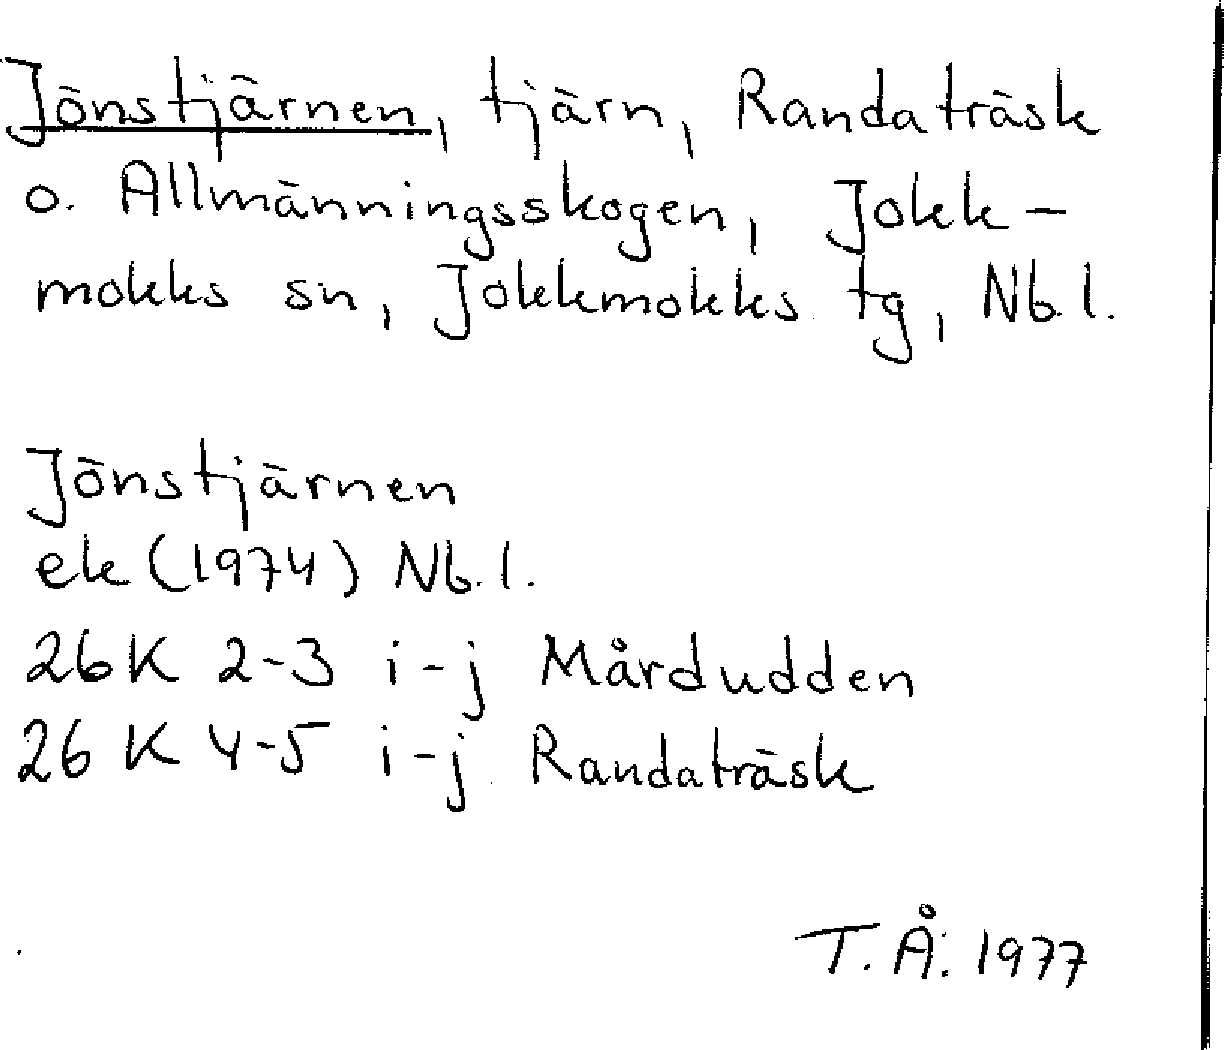 Jönstjärnen, tjärn, Randaträsk
o. Allmänningsskogen, Jokk-
mokks sn, Jokkmokks tg, Nb.l.
Jönstjärnen
ek (1974) Nb.l.
26K 2-3 i-j Mårdudden
26 K 4-5 i-j Randaträsk
T.Å. 1977